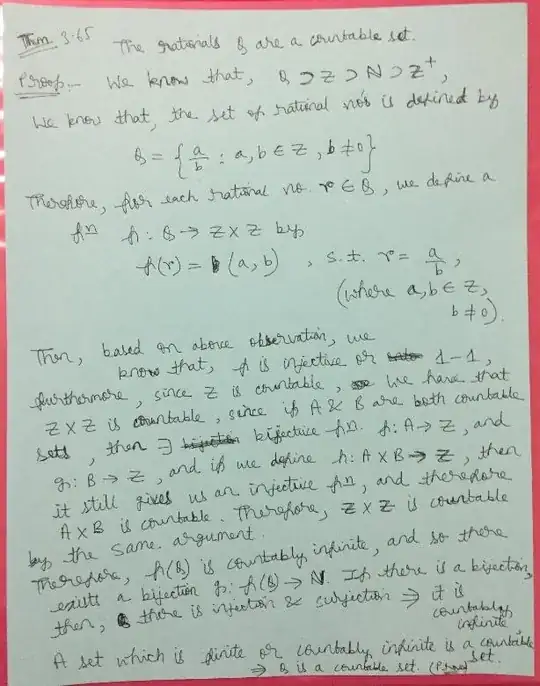 Thm. 3.65 The rationals Q are a countable set.
Proof:- We know that, Q ⊃ Z ⊃ N ⊃ Z⁺,
We know that, the set of rational no's is defined by
Q = { a/b : a, b ∈ Z, b ≠ 0 }
Therefore, for each rational no. r ∈ Q, we define a
fⁿ f : Q → Z × Z by
f(r) = (a, b) , s.t. r = a/b,
(where a, b ∈ Z,
b ≠ 0).
Then, based on above observation, we
know that, f is injective or 1-1,
furthermore, since Z is countable, we have that
Z × Z is countable, since if A & B are both countable
sets, then ∃ bijective fⁿ. f: A → Z, and
g: B → Z, and if we define h: A × B → Z, then
it still gives us an injective fⁿ, and therefore
A × B is countable. Therefore, Z × Z is countable
by the same argument.
Therefore, f(Q) is countably infinite, and so there
exists a bijection g: f(Q) → N. If there is a bijection,
then, there is injection & surjection ⇒ it is
countably
infinite
A set which is finite or countably infinite is a countable
set.
⇒ Q is a countable set.